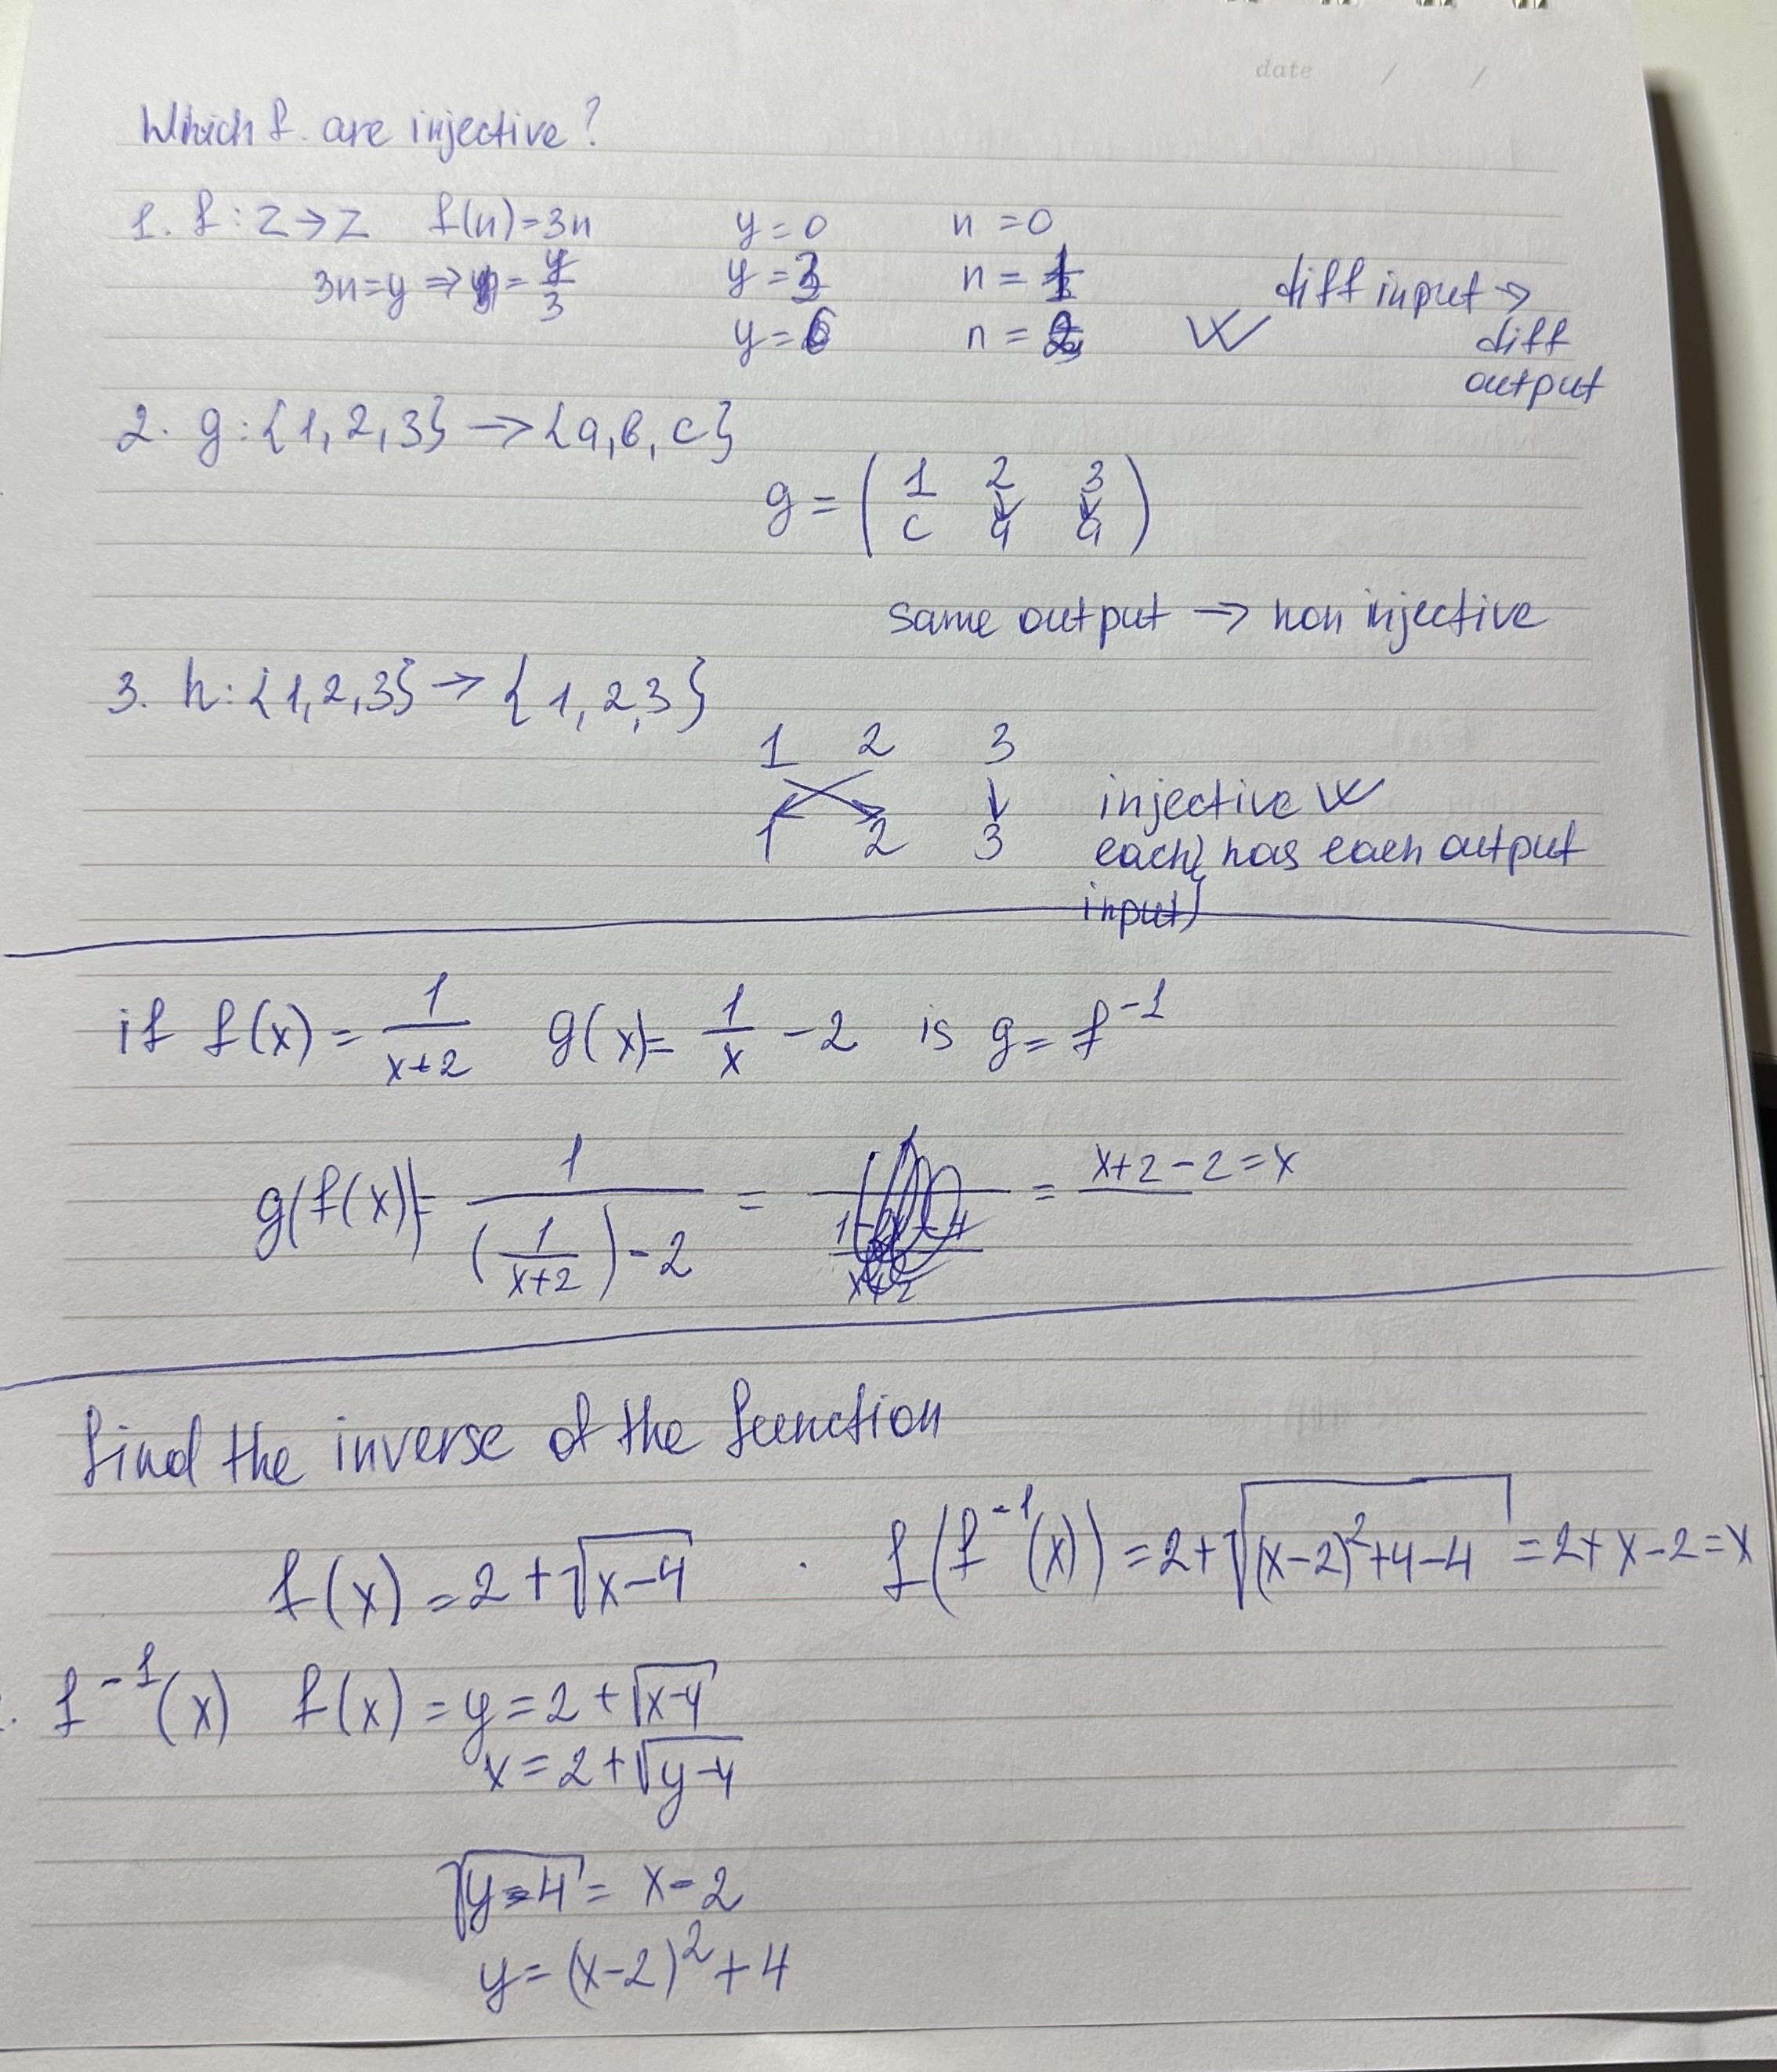 date / /
Which f. are injective?
1. f: Z→Z f(n)=3n y=0 n=0
3n=y ⇒ n=y/3 y=3 n=1 diff input →
y=6 n=2 diff
output
2. g:{1,2,3} → {a,b,c}
g = ( 1 2 3
c a a )
same output → non injective
3. h:{1,2,3} → {1,2,3}
1 2 3
injective
1 2 3 each has each output
input
if f(x) = 1/(x+2) g(x)= 1/x - 2 is g = f⁻¹
g(f(x))= 1/((1/(x+2))-2) = = x+2-2=x
find the inverse of the function
f(x) = 2+√(x-4) · f(f⁻¹(x)) = 2+√((x-2)²+4-4) = 2+x-2=x
f⁻¹(x) f(x) = y = 2+√(x-4)
x = 2+√(y-4)
√(y-4) = x-2
y = (x-2)²+4